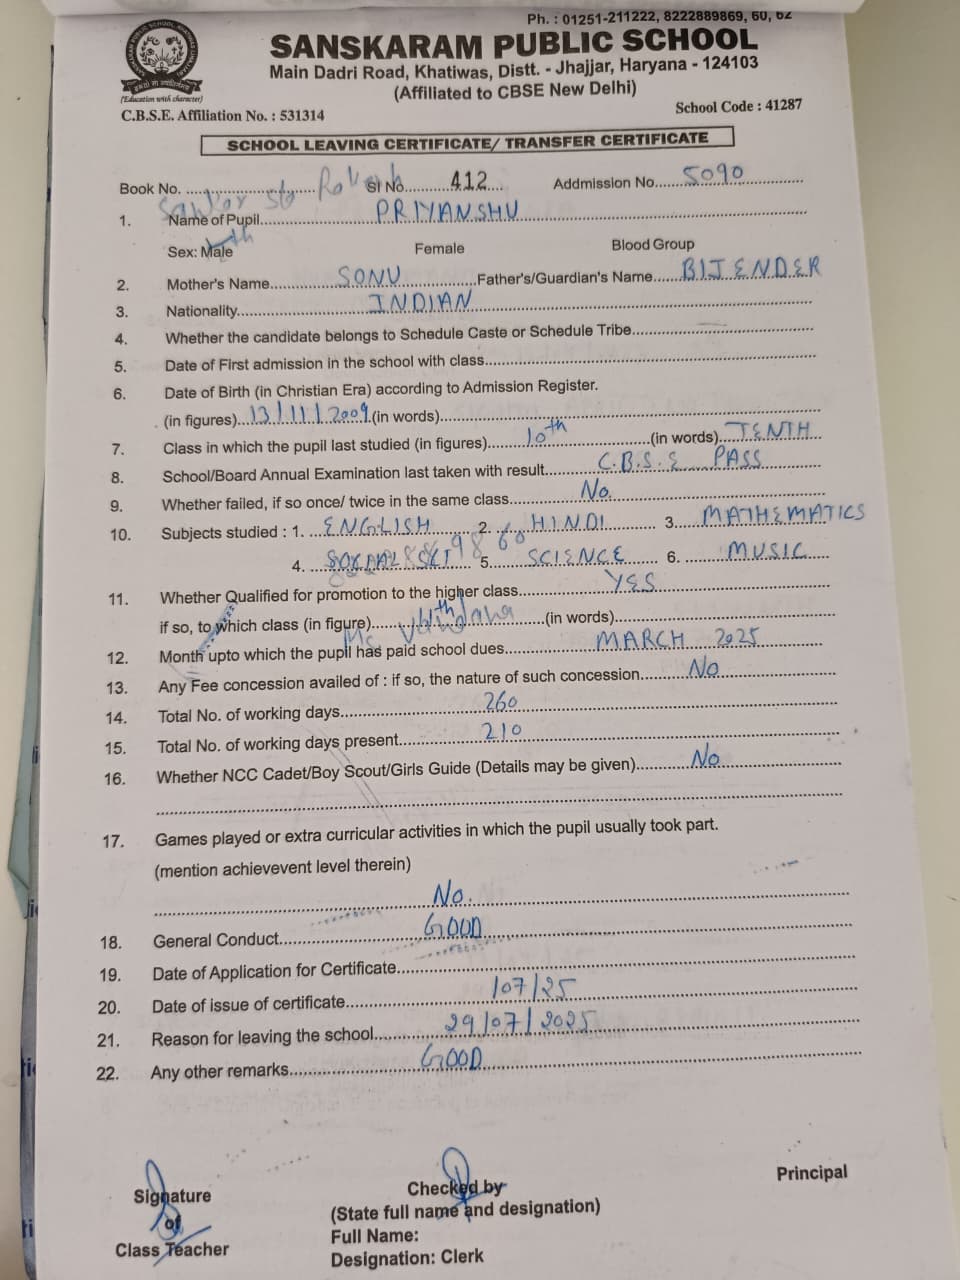 Ph. : 01251-211222, 8222889869, 60, 62
SANSKARAM PUBLIC SCHOOL
Main Dadri Road, Khatiwas, Distt. - Jhajjar, Haryana - 124103
(Affiliated to CBSE New Delhi)
(Education with character)
C.B.S.E. Affiliation No. : 531314
School Code : 41287
SCHOOL LEAVING CERTIFICATE/ TRANSFER CERTIFICATE
Book No. .............. Sl No. 412 Addmission No. 5090
1. Name of Pupil PRIYANSHU
Sex: Male Female Blood Group
2. Mother's Name SONU Father's/Guardian's Name BIJENDER
3. Nationality INDIAN
4. Whether the candidate belongs to Schedule Caste or Schedule Tribe
5. Date of First admission in the school with class
6. Date of Birth (in Christian Era) according to Admission Register.
(in figures) 13/11/2009 (in words)
7. Class in which the pupil last studied (in figures) 10th (in words) TENTH
8. School/Board Annual Examination last taken with result C.B.S.E PASS
9. Whether failed, if so once/ twice in the same class No.
10. Subjects studied : 1. ENGLISH 2. HINDI 3. MATHEMATICS
4. SCI 5. SCIENCE 6. MUSIC
11. Whether Qualified for promotion to the higher class YES
if so, to which class (in figure) 11th (in words)
12. Month upto which the pupil has paid school dues MARCH 2025
13. Any Fee concession availed of : if so, the nature of such concession No
14. Total No. of working days 260
15. Total No. of working days present 210
16. Whether NCC Cadet/Boy Scout/Girls Guide (Details may be given) No
17. Games played or extra curricular activities in which the pupil usually took part.
(mention achievevent level therein)
No.
18. General Conduct GOOD
19. Date of Application for Certificate
20. Date of issue of certificate /07/25
21. Reason for leaving the school 29/07/2025
22. Any other remarks GOOD
Signature of Class Teacher
Checked by
(State full name and designation)
Full Name:
Designation: Clerk
Principal